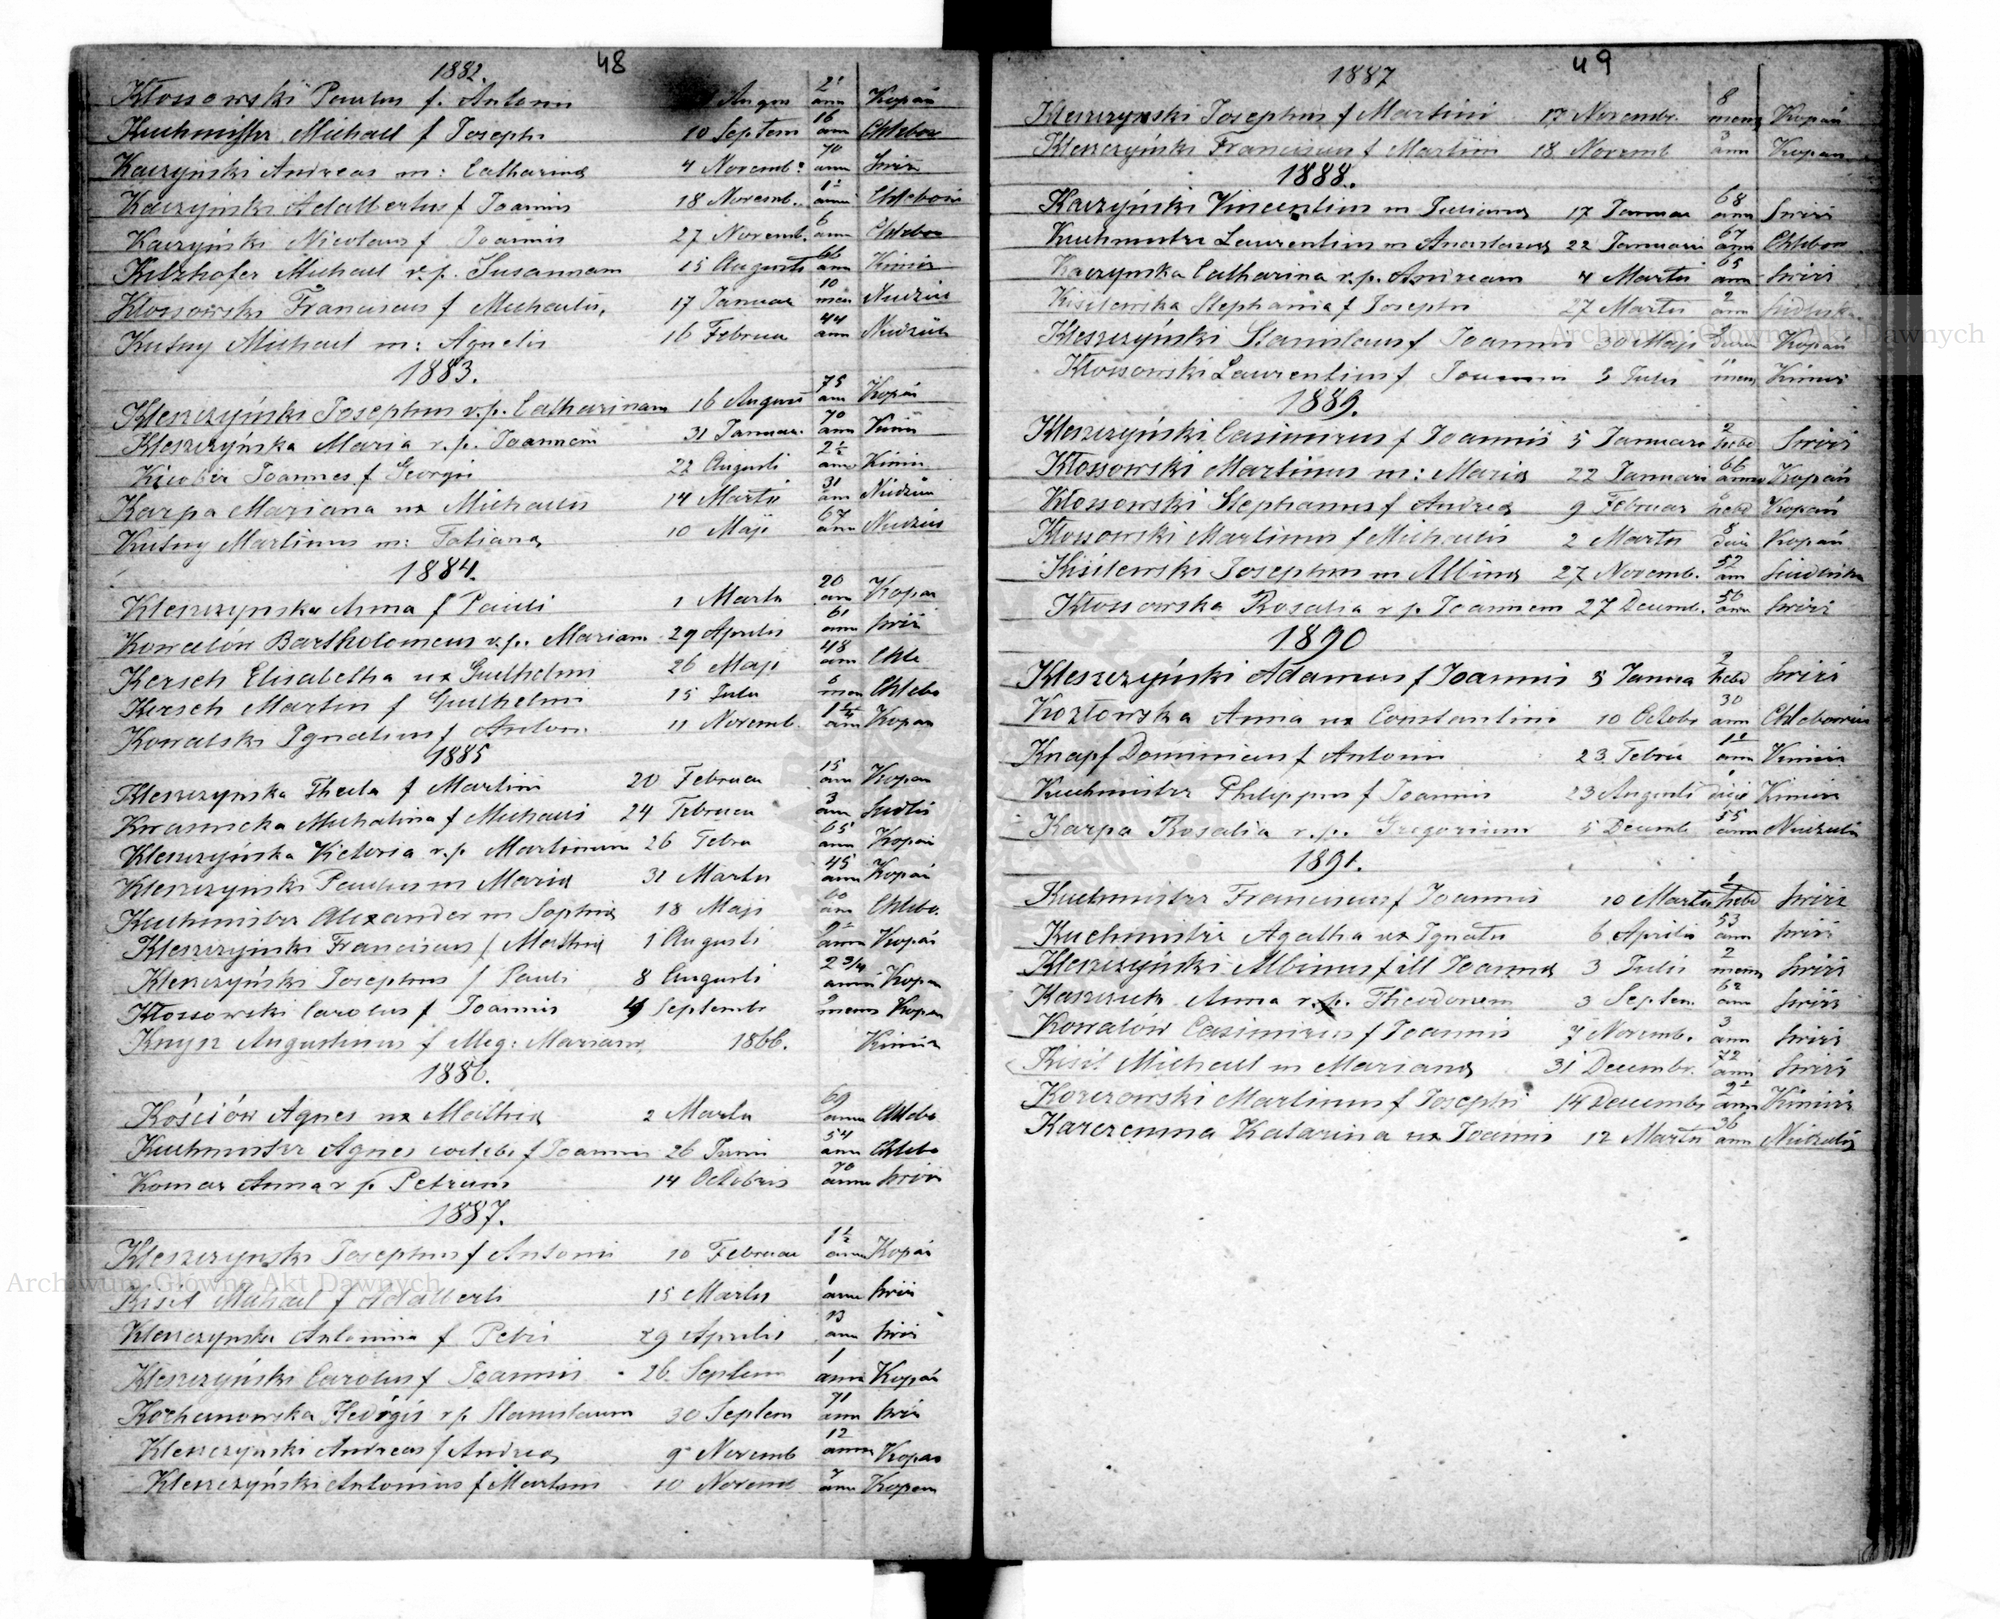 48
1882.
Kłossowski Paulus f. Antonii Augus 2 ann Kopań
Kuchmistrz Michael f Josephi 10 Septem 16 ann Chlebow
Kaczyński Andreas m: Catharina 4 Novemb: 70 ann Swirz
Kaczyński Adalbertus f Joannis 18 Novemb. ann Chlebow
Kaczyński Nicolaus f Joannis 27 Novemb. 6 ann Chlebow
Kilzhofer Michael r.p. Susannam 15 Augusti 66 ann Kimirz
Kłossowski Franciscus f Michaelis, 17 Januar 10 men Niedziel
Kutny Michael m: Agnetis 16 Februa 44 ann Niedziel
1883.
Kleszczyński Josephus r.p. Catharinam 16 Augusti 75 ann Kopań
Kleszczyńska Maria r.p. Joannem 31 Januar. 70 ann Kimir
Joannes f Georgii 22 Augusti 2½ ann Kimir
Karpa Mariana ux Michaelis 14 Martii 31 ann Niedziel
Kutny Martinus m: Tatiana 10 Maji 67 ann Niedziel
1884.
Kleszczynska Anna f Pauli 1 Marti 20 ann Kopań
Kowalów Bartholomeus r.p. Mariam 29 Aprilis 61 ann Swirz
Kersch Elisabetha ux Guilhelmi 26 Maji 48 ann Chle
Kersch Martin f Guilhelmi 15 Julii 6 men Chlebo
Kowalski Ignatius f Antoni 11 Novemb. 1¼ ann Kopan
1885
Kleszczynska Thecla f Martini 20 Februa 15 ann Kopan
Krasnicka Michalina f Michaeli 24 Februa 3 ann
Kleszczyńska Victoria r.p. Martinum 26 Febru 65 ann Kopań
Kleszczyński Paulus m Maria 31 Martii 45 ann Kopań
Kuchmistrz Alexander m Sophia 18 Maji 60 ann Chlebo.
Kleszczyński Franciscus f Mathia 1 Augusti ann Kopań
Kleszczyński Josephus f Pauli 8 Augusti 2 3/4 ann Kopan
Kłossowski Carolus f Joannis 4 Septembr 9 mens Kopan
Knysz Augustinus f Aleg: Mariana, 1866. Kimirz
1886.
Kościów Agnes ux Mathia 2 Martii 69 ann Chlebo
Kuchmistrz Agnes f Joannis 26 Junii 54 ann Chlebo
Komar Anna r p. Petrum 14 Octobris 70 anno Swirz
1887.
Kleszczynski Josephus f Antonii 10 Februar 1½ ann Kopań
Kisil Michael f Adalberti 15 Martii 1 ann Swirz
Kleszczynska Antonina f Petri 29 Aprilis 13 ann Swirz
Kleszczyński Carolus f Joannis 26 Septem 1 ann Kopań
Kochanowska Hedvigis r.p. Stanislaum 30 Septem 71 ann Swirz
Kleszczynski Andreas f Andrea 9 Novemb 12 anno Kopan
Kleszczyński Antonius f Martini 10 Novemb 7 ann Kopan
49
1887
Kleszczynski Josephus f Martini 17 Novembr. 8 mens Kopań
Kleszczyński Franciscus f Martini 18 Novemb 3 ann Kopan
1888.
Kaczyński Vincentius m Juliana 17 Januar 68 ann Swirz
Kuchmistrz Laurentius m Anastasia 22 Januarii 67 ann Chlebow
Kaczynska Catharina r.p. Andream 4 Martii 65 ann Swirz
Kisilewska Stephania f Josephi 27 Martii 2 ann
Kleszczyński Stanislaus f Joannis 30 Maji Kopań
Kłossowski Laurentius f Joannis 3 Julii 11 mens Kimirz
1889.
Kleszczyński Casimirus f Joannis 5 Januari 2 hebd Swirz
Kłossowski Martinus m: Maria 22 Januari 66 anno Kopań
Kłossowski Stephanus f Andrea 9 Februar hebd Kopań
Kłossowski Martinus f Michaelis 2 Martii 8 Kopań
Kisilewski Josephus m Albina 27 Novemb. 52 ann
Kłossowska Rosalia r p. Joannem 27 Decemb. 56 ann Swirz
1890
Kleszczyński Adamus f Joannis 5 Janua 2 hebd Swirz
Kozłowska Anna ux Constantini 10 Octobr 30 ann Chlebowice
Knapf Dominicus f Antonii 23 Febru ann Kimirz
Kuchmistrz Philippus f Joannis 23 Augusti Kimirz
Karpa Rosalia r.p. Gregorium 5 Decemb 55 ann Niedziel
1891.
Kuchmistrz Franciscus f Joannis 10 Martii 1 hebd Swirz
Kuchmistrz Agatha ux Ignatii 6 Aprilis 53 ann Swirz
Kleszczyński Albinus f ill Joanna 3 Julii 2 mens Swirz
Kaszczuk Anna r.p. Theodorem 3 Septem. 62 ann Swirz
Kowalów Casimirus f Joannis 7 Novemb. 3 ann Swirz
Kisil Michael m Mariana 31 Decembr. 72 ann Swirz
Korczowski Martinus f Josephi 14 Decembr ann Kimirz
Karczemna Katarina ux Joannis 12 Martii 36 ann Niedziel
Archiwum Główne Akt Dawnych
Archiwum Główne Akt Dawnych